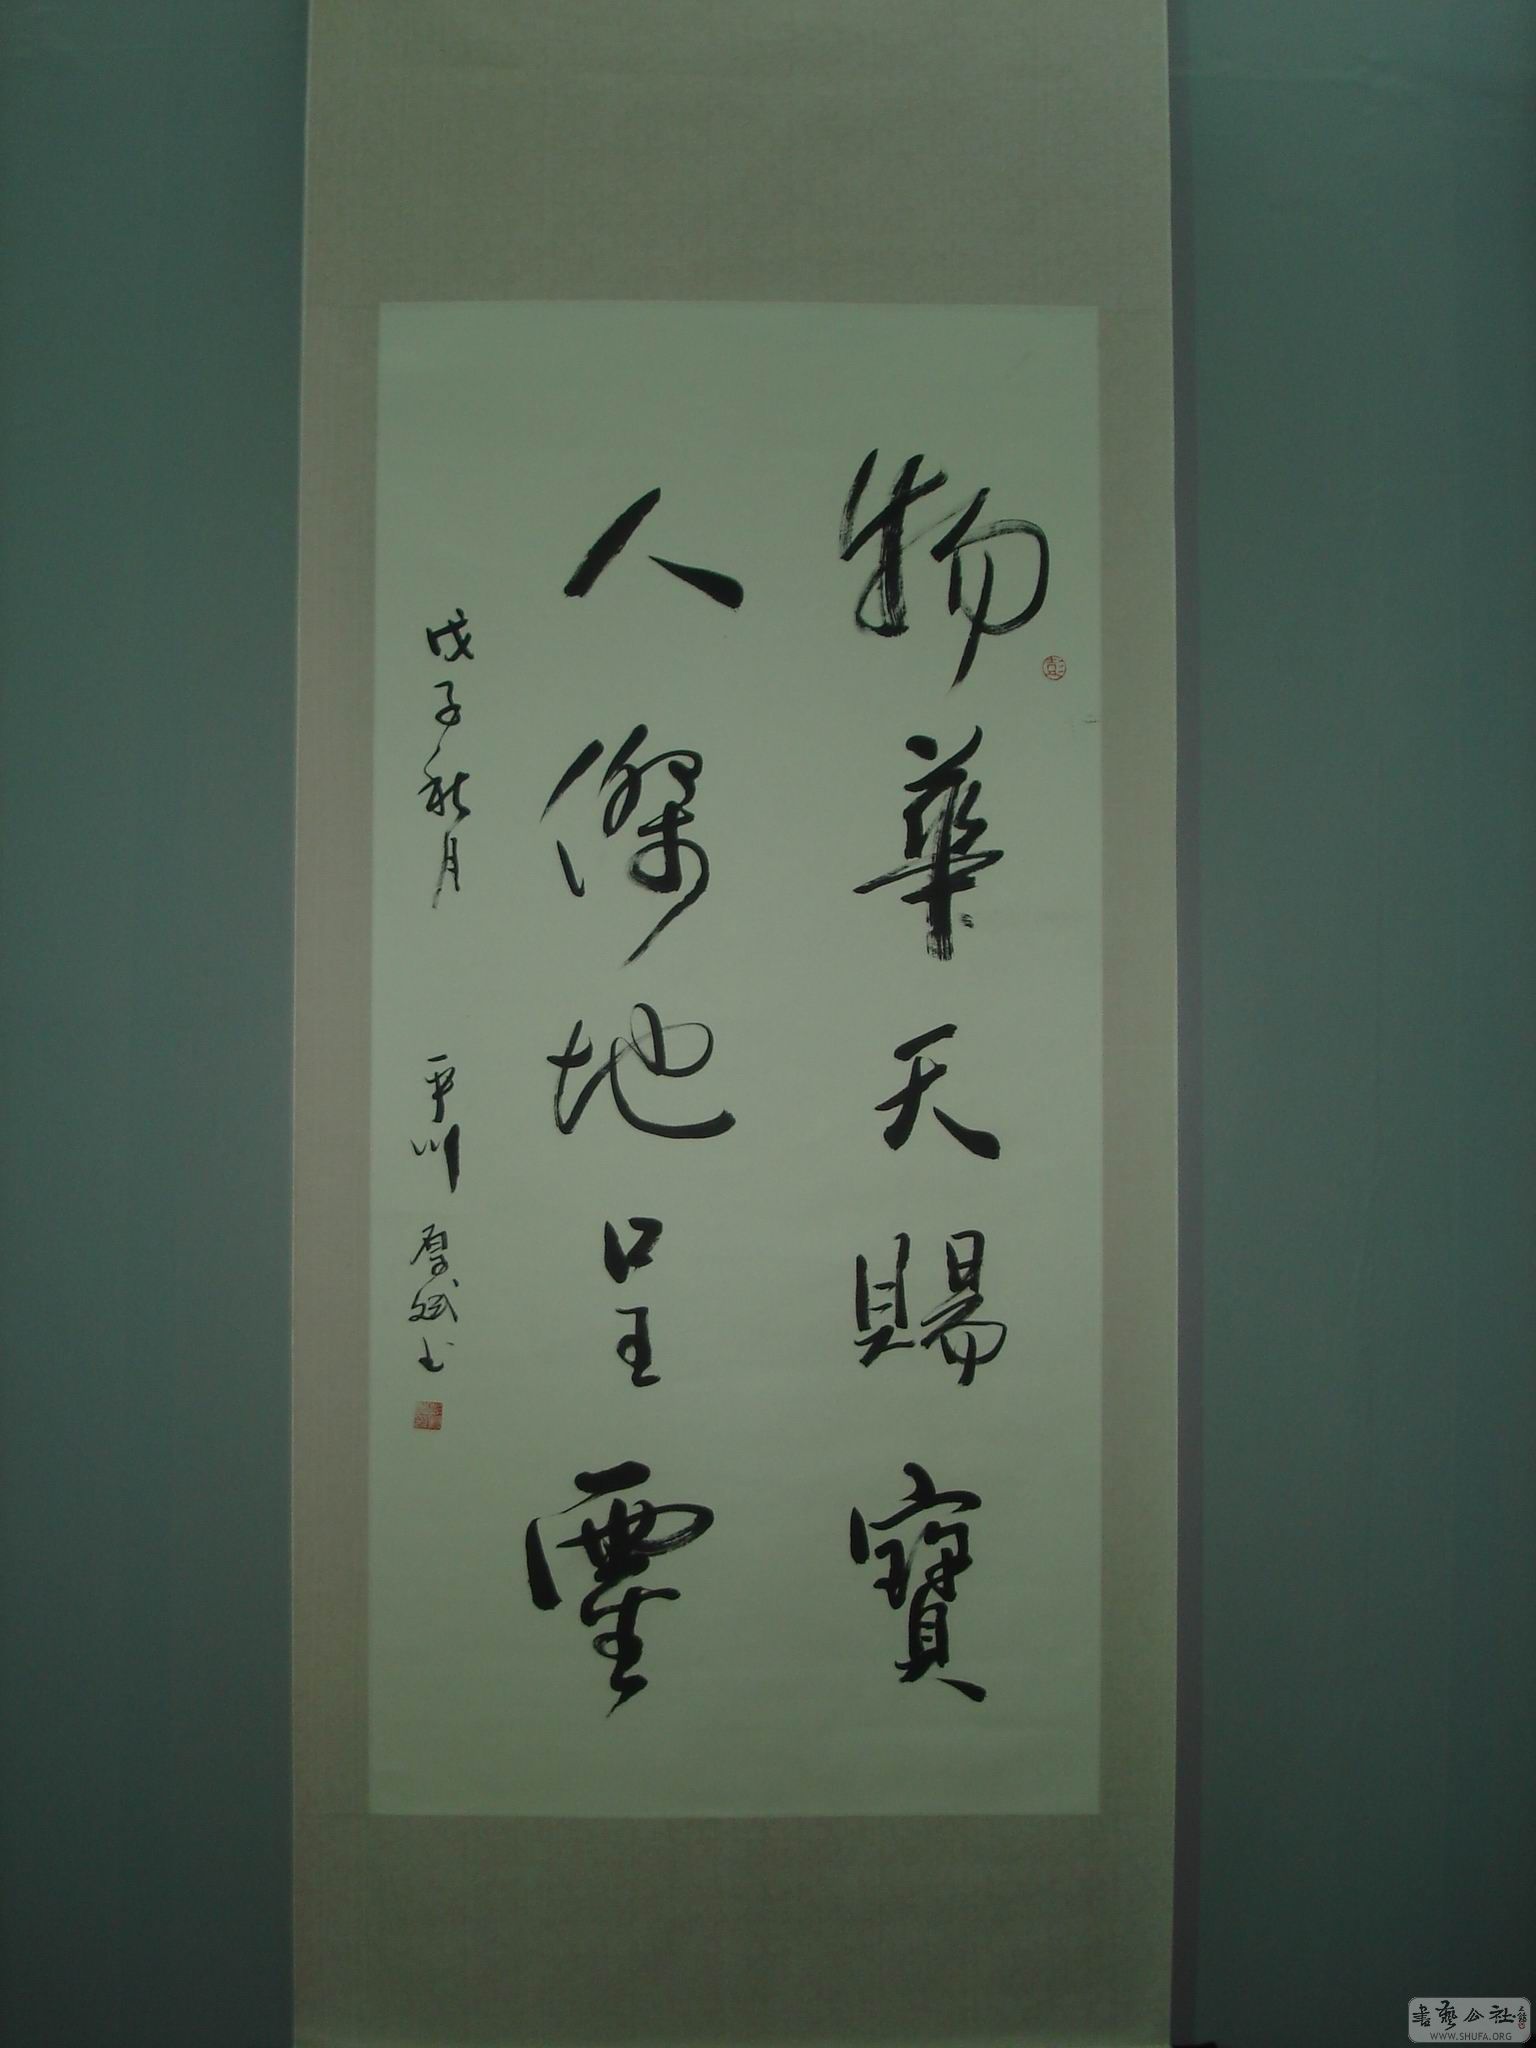 物華天賜寶
人傑地呈靈
戊子秋月 平川 厚斌书
書藝公社
WWW.SHUFA.ORG